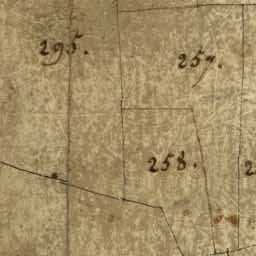 295.
257.
258.
2